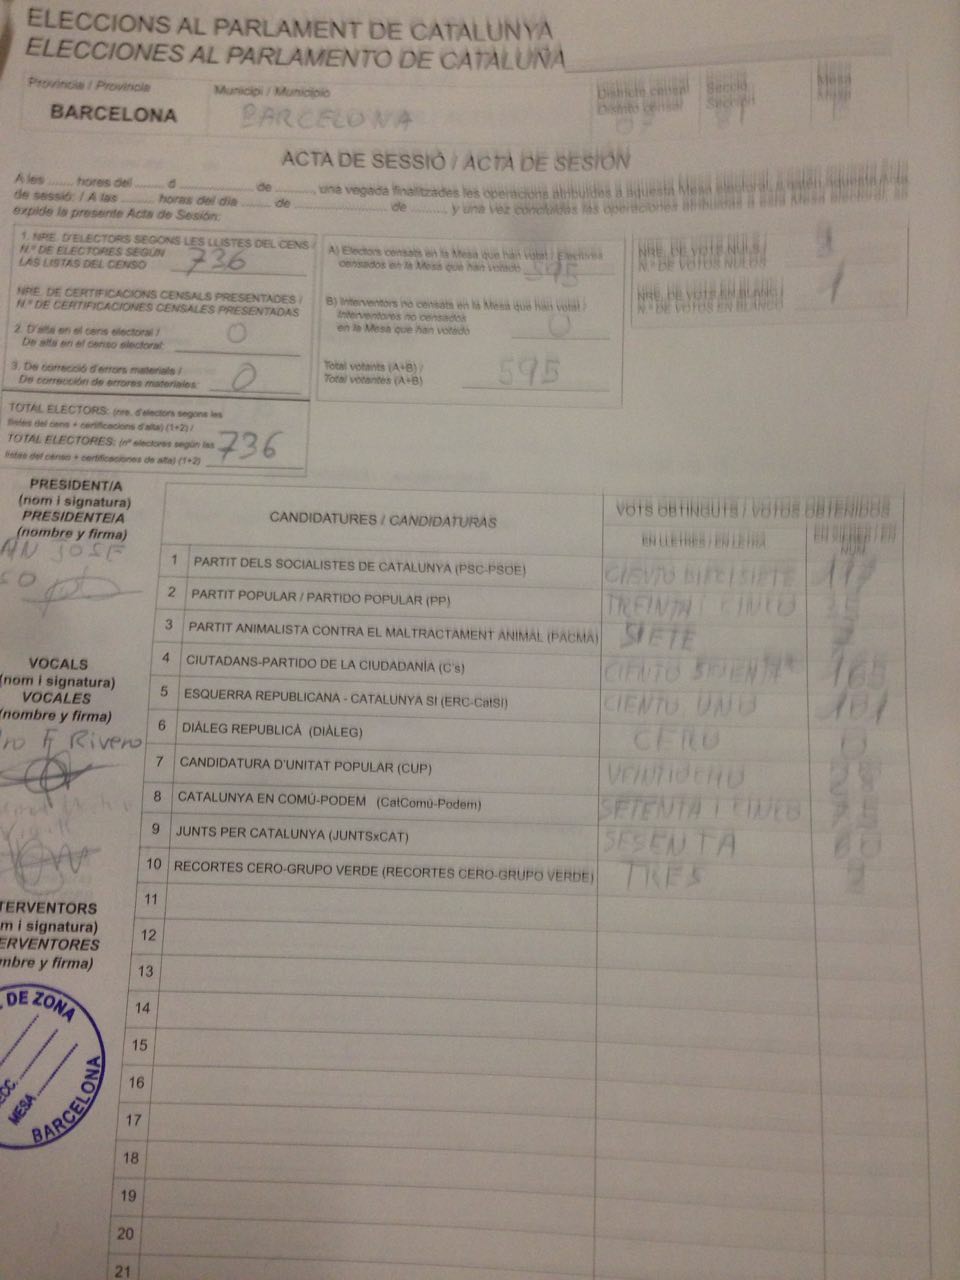 ELECCIONS AL PARLAMENT DE CATALUNYA
ELECCIONES AL PARLAMENTO DE CATALUÑA
Província / Provincia
BARCELONA
Municipi / Municipio
BARCELONA
Districte censal
Distrito censal
Secció
Sección
Mesa
Mesa
ACTA DE SESSIÓ / ACTA DE SESIÓN
A les ........ hores del ........ d ........ de ........, una vegada finalitzades les operacions atribuïdes a aquesta Mesa electoral,
de sessió: / A las ........ horas del día ........ de ........ de ........, y una vez concluidas las operaciones atribuidas a esta Mesa electoral, se
expide la presente Acta de Sesión:
1. NRE. D'ELECTORS SEGONS LES LLISTES DEL CENS /
N.º DE ELECTORES SEGÚN
LAS LISTAS DEL CENSO 736
NRE. DE CERTIFICACIONS CENSALS PRESENTADES /
N.º DE CERTIFICACIONES CENSALES PRESENTADAS
2. D'alta en el cens electoral /
De alta en el censo electoral: 0
3. De correcció d'errors materials /
De corrección de errores materiales: 0
TOTAL ELECTORS: (nre. d'electors segons les
llistes del cens + certificacions d'alta) (1+2) /
TOTAL ELECTORES: (nº electores según las
listas del censo + certificaciones de alta) (1+2) 736
A) Electors censats en la Mesa que han votat / Electores
censados en la Mesa que han votado 595
B) Interventors no censats en la Mesa que han votat /
Interventores no censados
en la Mesa que han votado 0
Total votants (A+B) /
Total votantes (A+B) 595
NRE. DE VOTS NULS /
N.º DE VOTOS NULOS
NRE. DE VOTS EN BLANC /
N.º DE VOTOS EN BLANCO 1
PRESIDENT/A
(nom i signatura)
PRESIDENTE/A
(nombre y firma)
JOSE
VOCALS
(nom i signatura)
VOCALES
(nombre y firma)
Rivero
TERVENTORS
m i signatura)
ERVENTORES
mbre y firma)
DE ZONA
MESA
BARCELONA
CANDIDATURES / CANDIDATURAS
VOTS OBTINGUTS / VOTOS OBTENIDOS
EN LLETRES / EN LETRA
1 PARTIT DELS SOCIALISTES DE CATALUNYA (PSC-PSOE) CIENTO DIECISIETE 117
2 PARTIT POPULAR / PARTIDO POPULAR (PP) TREINTA I CINCO 35
3 PARTIT ANIMALISTA CONTRA EL MALTRACTAMENT ANIMAL (PACMA) SIETE 7
4 CIUTADANS-PARTIDO DE LA CIUDADANÍA (C's) CIENTO 165
5 ESQUERRA REPUBLICANA - CATALUNYA SI (ERC-CatSI) CIENTO UNO 101
6 DIÀLEG REPUBLICÀ (DIÀLEG) CERO 0
7 CANDIDATURA D'UNITAT POPULAR (CUP) VEINTIOCHO 28
8 CATALUNYA EN COMÚ-PODEM (CatComú-Podem) SETENTA I CINCO 75
9 JUNTS PER CATALUNYA (JUNTSxCAT) SESENTA 60
10 RECORTES CERO-GRUPO VERDE (RECORTES CERO-GRUPO VERDE) TRES 3
11
12
13
14
15
16
17
18
19
20
21